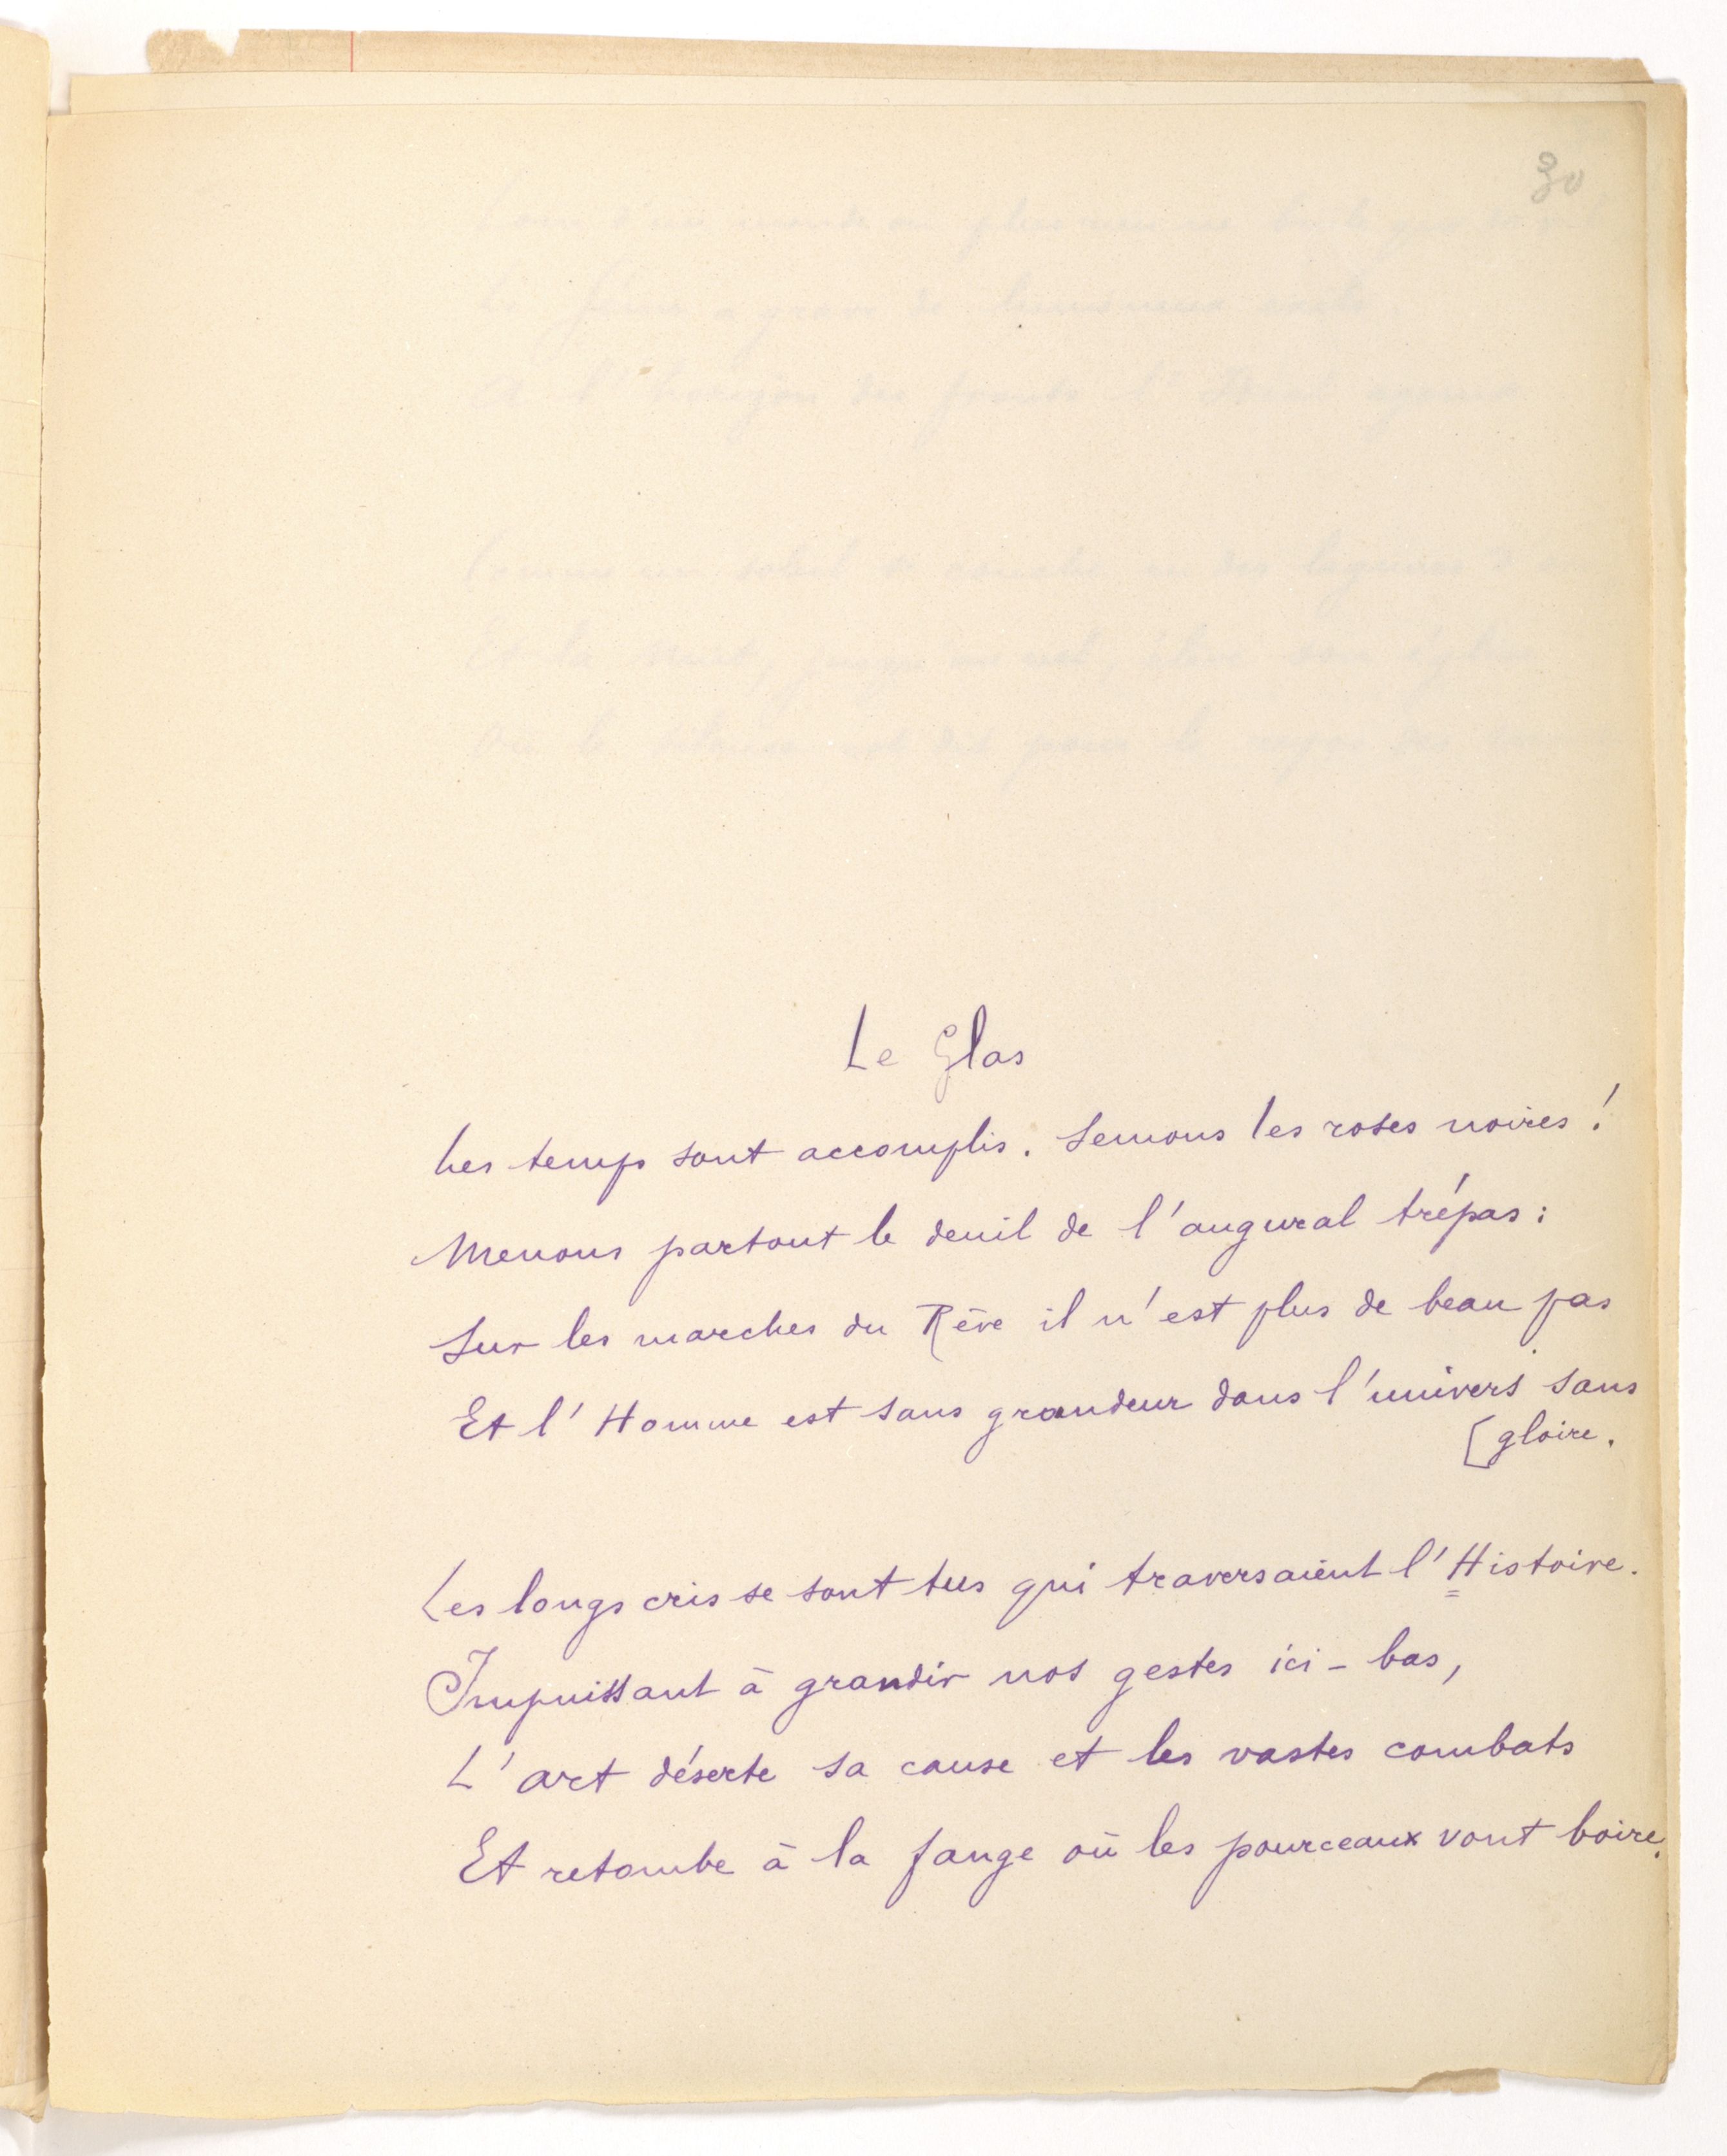 30
Le Glas
Les temps sont accomplis. Semons les roses noires !
Menons partout le deuil de l'augural trépas :
Sur les marches du Rêve il n'est plus de beau pas
Et l'Homme est sans grandeur dans l'univers sans
[gloire.
Les longs cris se sont tus qui traversaient l'Histoire.
Impuissant à grandir nos gestes ici-bas,
L'art déserte sa cause et les vastes combats
Et retombe à la fange où les pourceaux vont boire.